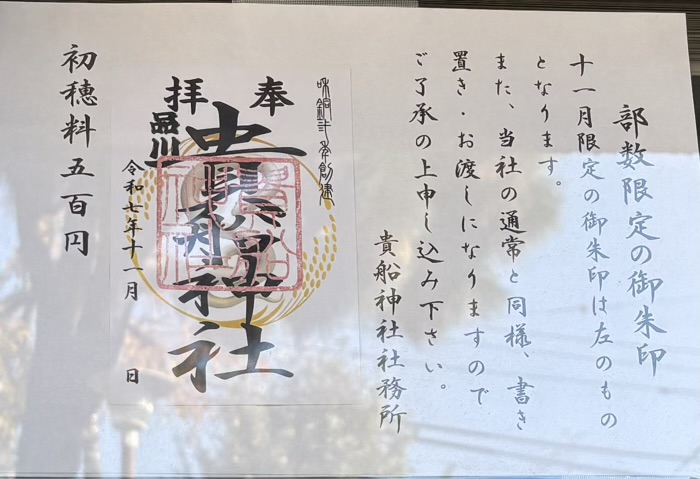 部数限定の御朱印
十一月限定の御朱印は左のもの
となります。
また、当社の通常と同様、書き
置き・お渡しになりますので
ご了承の上申し込み下さい。
貴船神社社務所
和銅二年創建
奉拝
品川
貴船神社
令和七年十一月 日
初穂料五百円